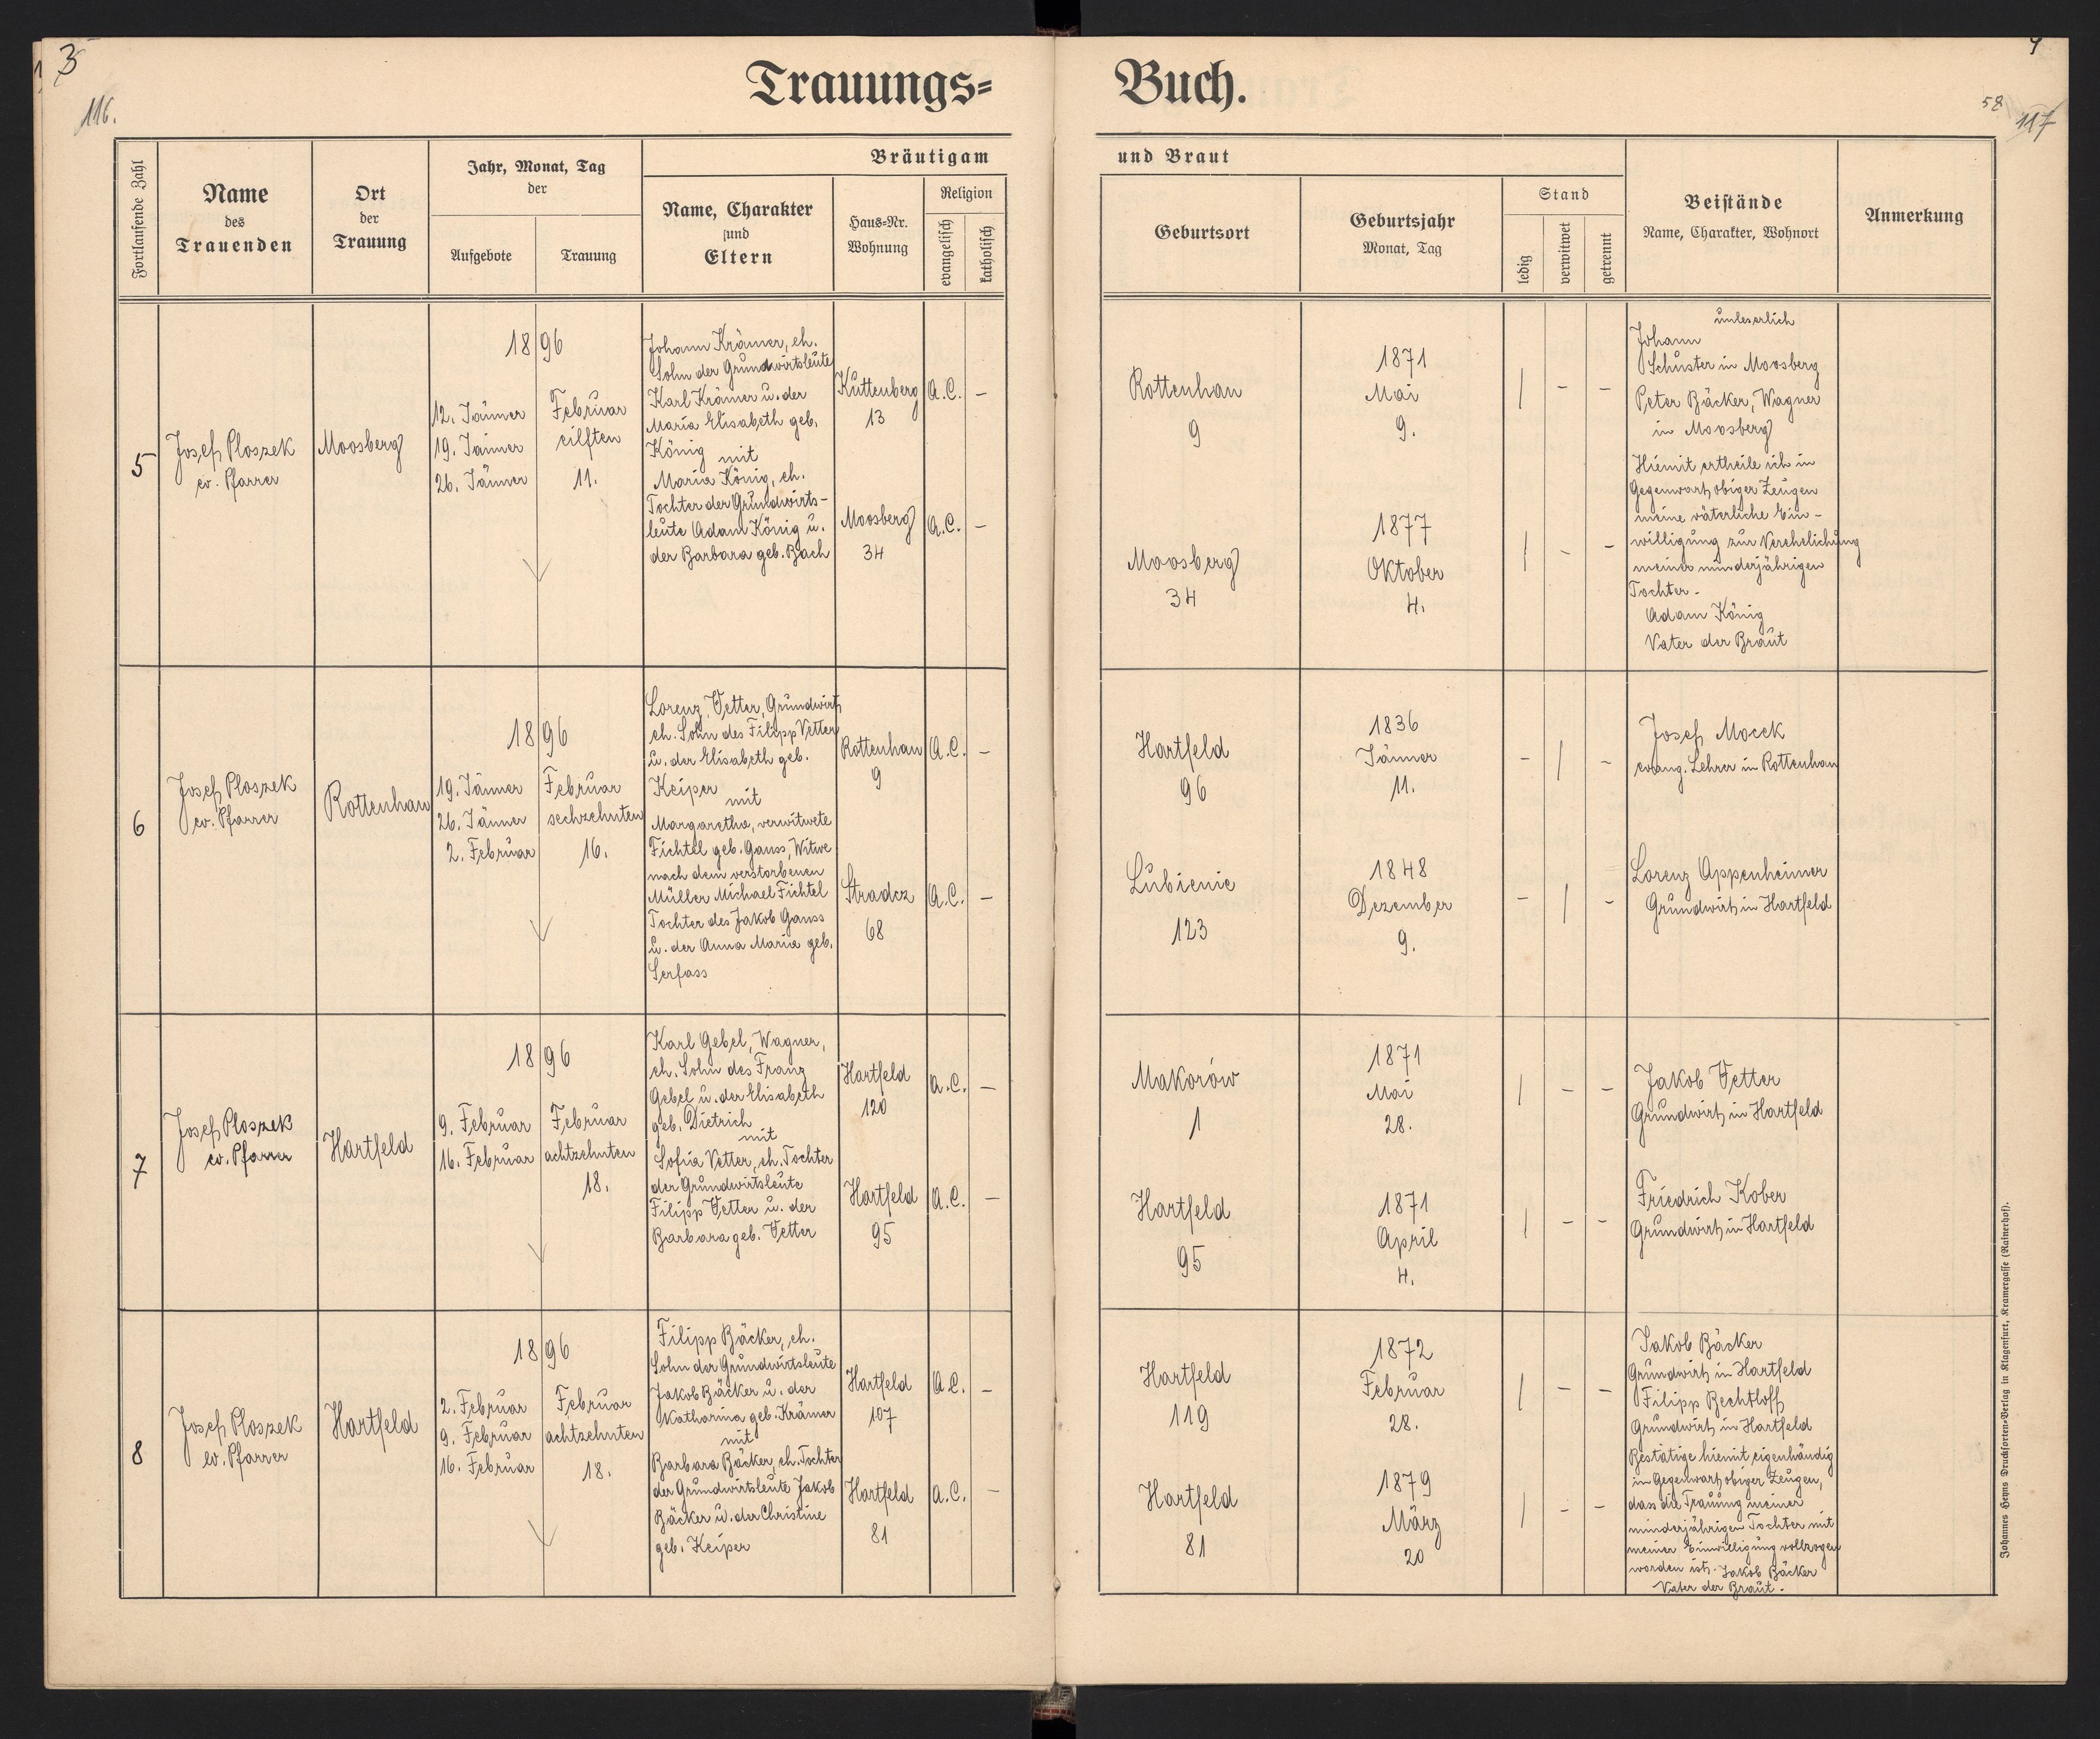 3
116.
Trauungs=
Fortlaufende Zahl
Name
des
Trauenden
Ort
der
Trauung
Jahr, Monat, Tag
der
Aufgebote
Trauung
Bräutigam
Name, Charakter
und
Eltern
Haus=Nr.
Wohnung
Religion
evangelisch
katholisch
5
Josef Ploszek
ev. Pfarrer
Moosberg
1896
12. Jänner
19. Jänner
26. Jänner
Februar
eilften
11.
Johann Krämer, eh.
Sohn der Grundwirtsleute
Karl Krämer u. der
Maria Elisabeth geb.
König mit
Maria König, eh.
Tochter der Grundwirts-
leute Adam König u.
der Barbara geb. Bach
Kuttenberg
13
A.C. –
Moosberg
34
A.C. –
6
Josef Ploszek
ev. Pfarrer
Rottenhan
1896
19. Jänner
26. Jänner
2. Februar
Februar
sechzehnten
16.
Lorenz Vetter, Grundwirth
eh. Sohn des Filipp Vetter
u. der Elisabeth geb.
Keiper mit
Margaretha, verwitwete
Fichtel geb. Gauss, Witwe
nach dem verstorbenen
Müller Michael Fichtel
Tochter des Jakob Gauss
u. der Anna Maria geb.
Serfass
Rottenhan
9
A.C. –
Stradcz
68
A.C. –
7
Josef Ploszek
ev. Pfarrer
Hartfeld
1896
9. Februar
16. Februar
Februar
achtzehnten
18.
Karl Gebel, Wagner,
eh. Sohn des Franz
Gebel u. der Elisabeth
geb. Dietrich
mit
Sofia Vetter, eh. Tochter
der Grundwirtsleute
Filipp Vetter u. der
Barbara geb. Vetter
Hartfeld
120
A.C. –
Hartfeld
95
A.C. –
8
Josef Ploszek
ev. Pfarrer
Hartfeld
1896
2. Februar
9. Februar
16. Februar
Februar
achtzehnten
18.
Filipp Bäcker, eh.
Sohn der Grundwirtsleute
Jakob Bäcker u. der
Katharina geb. Krämer
mit
Barbara Bäcker, eh. Tochter
der Grundwirtsleute Jakob
Bäcker u. der Christine
geb. Keiper
Hartfeld
107
A.C. –
Hartfeld
81
A.C. –
4
58
117
Buch.
und Braut
Geburtsort
Geburtsjahr
Monat, Tag
Stand
ledig
verwitwet
getrennt
Beistände
Name, Charakter, Wohnort
Anmerkung
Rottenhan
9
1871
Mai
9.
| – –
Moosberg
34
1877
Oktober
4.
| – –
unleserlich
Johann
Schuster in Moosberg
Peter Bäcker, Wagner
in Moosberg
Hiemit ertheile ich in
Gegenwart obiger Zeugen
meine väterliche Ein-
willigung zur Verehelichung
meiner minderjährigen
Tochter.
Adam König
Vater der Braut
Hartfeld
96
1836
Jänner
11.
– | –
Lubienie
123
1848
Dezember
9.
– | –
Josef Mocek
evang. Lehrer in Rottenhan
Lorenz Oppenheimer
Grundwirth in Hartfeld
Makorów
1
1871
Mai
28.
| – –
Hartfeld
95
1871
April
4.
| – –
Jakob Vetter
Grundwirth in Hartfeld
Friedrich Kober
Grundwirth in Hartfeld
Hartfeld
119
1872
Februar
28.
| – –
Hartfeld
81
1879
März
20
| – –
Jakob Bäcker
Grundwirth in Hartfeld
Filipp Bechtloff
Grundwirth in Hartfeld
Bestätige hiemit eigenhändig
in Gegenwart obiger Zeugen,
dass die Trauung meiner
minderjährigen Tochter mit
meiner Einwilligung vollzogen
worden ist. Jakob Bäcker
Vater der Braut.
Johannes Heyns Drucksorten=Verlag in Klagenfurt, Kramergasse (Rainerhof).